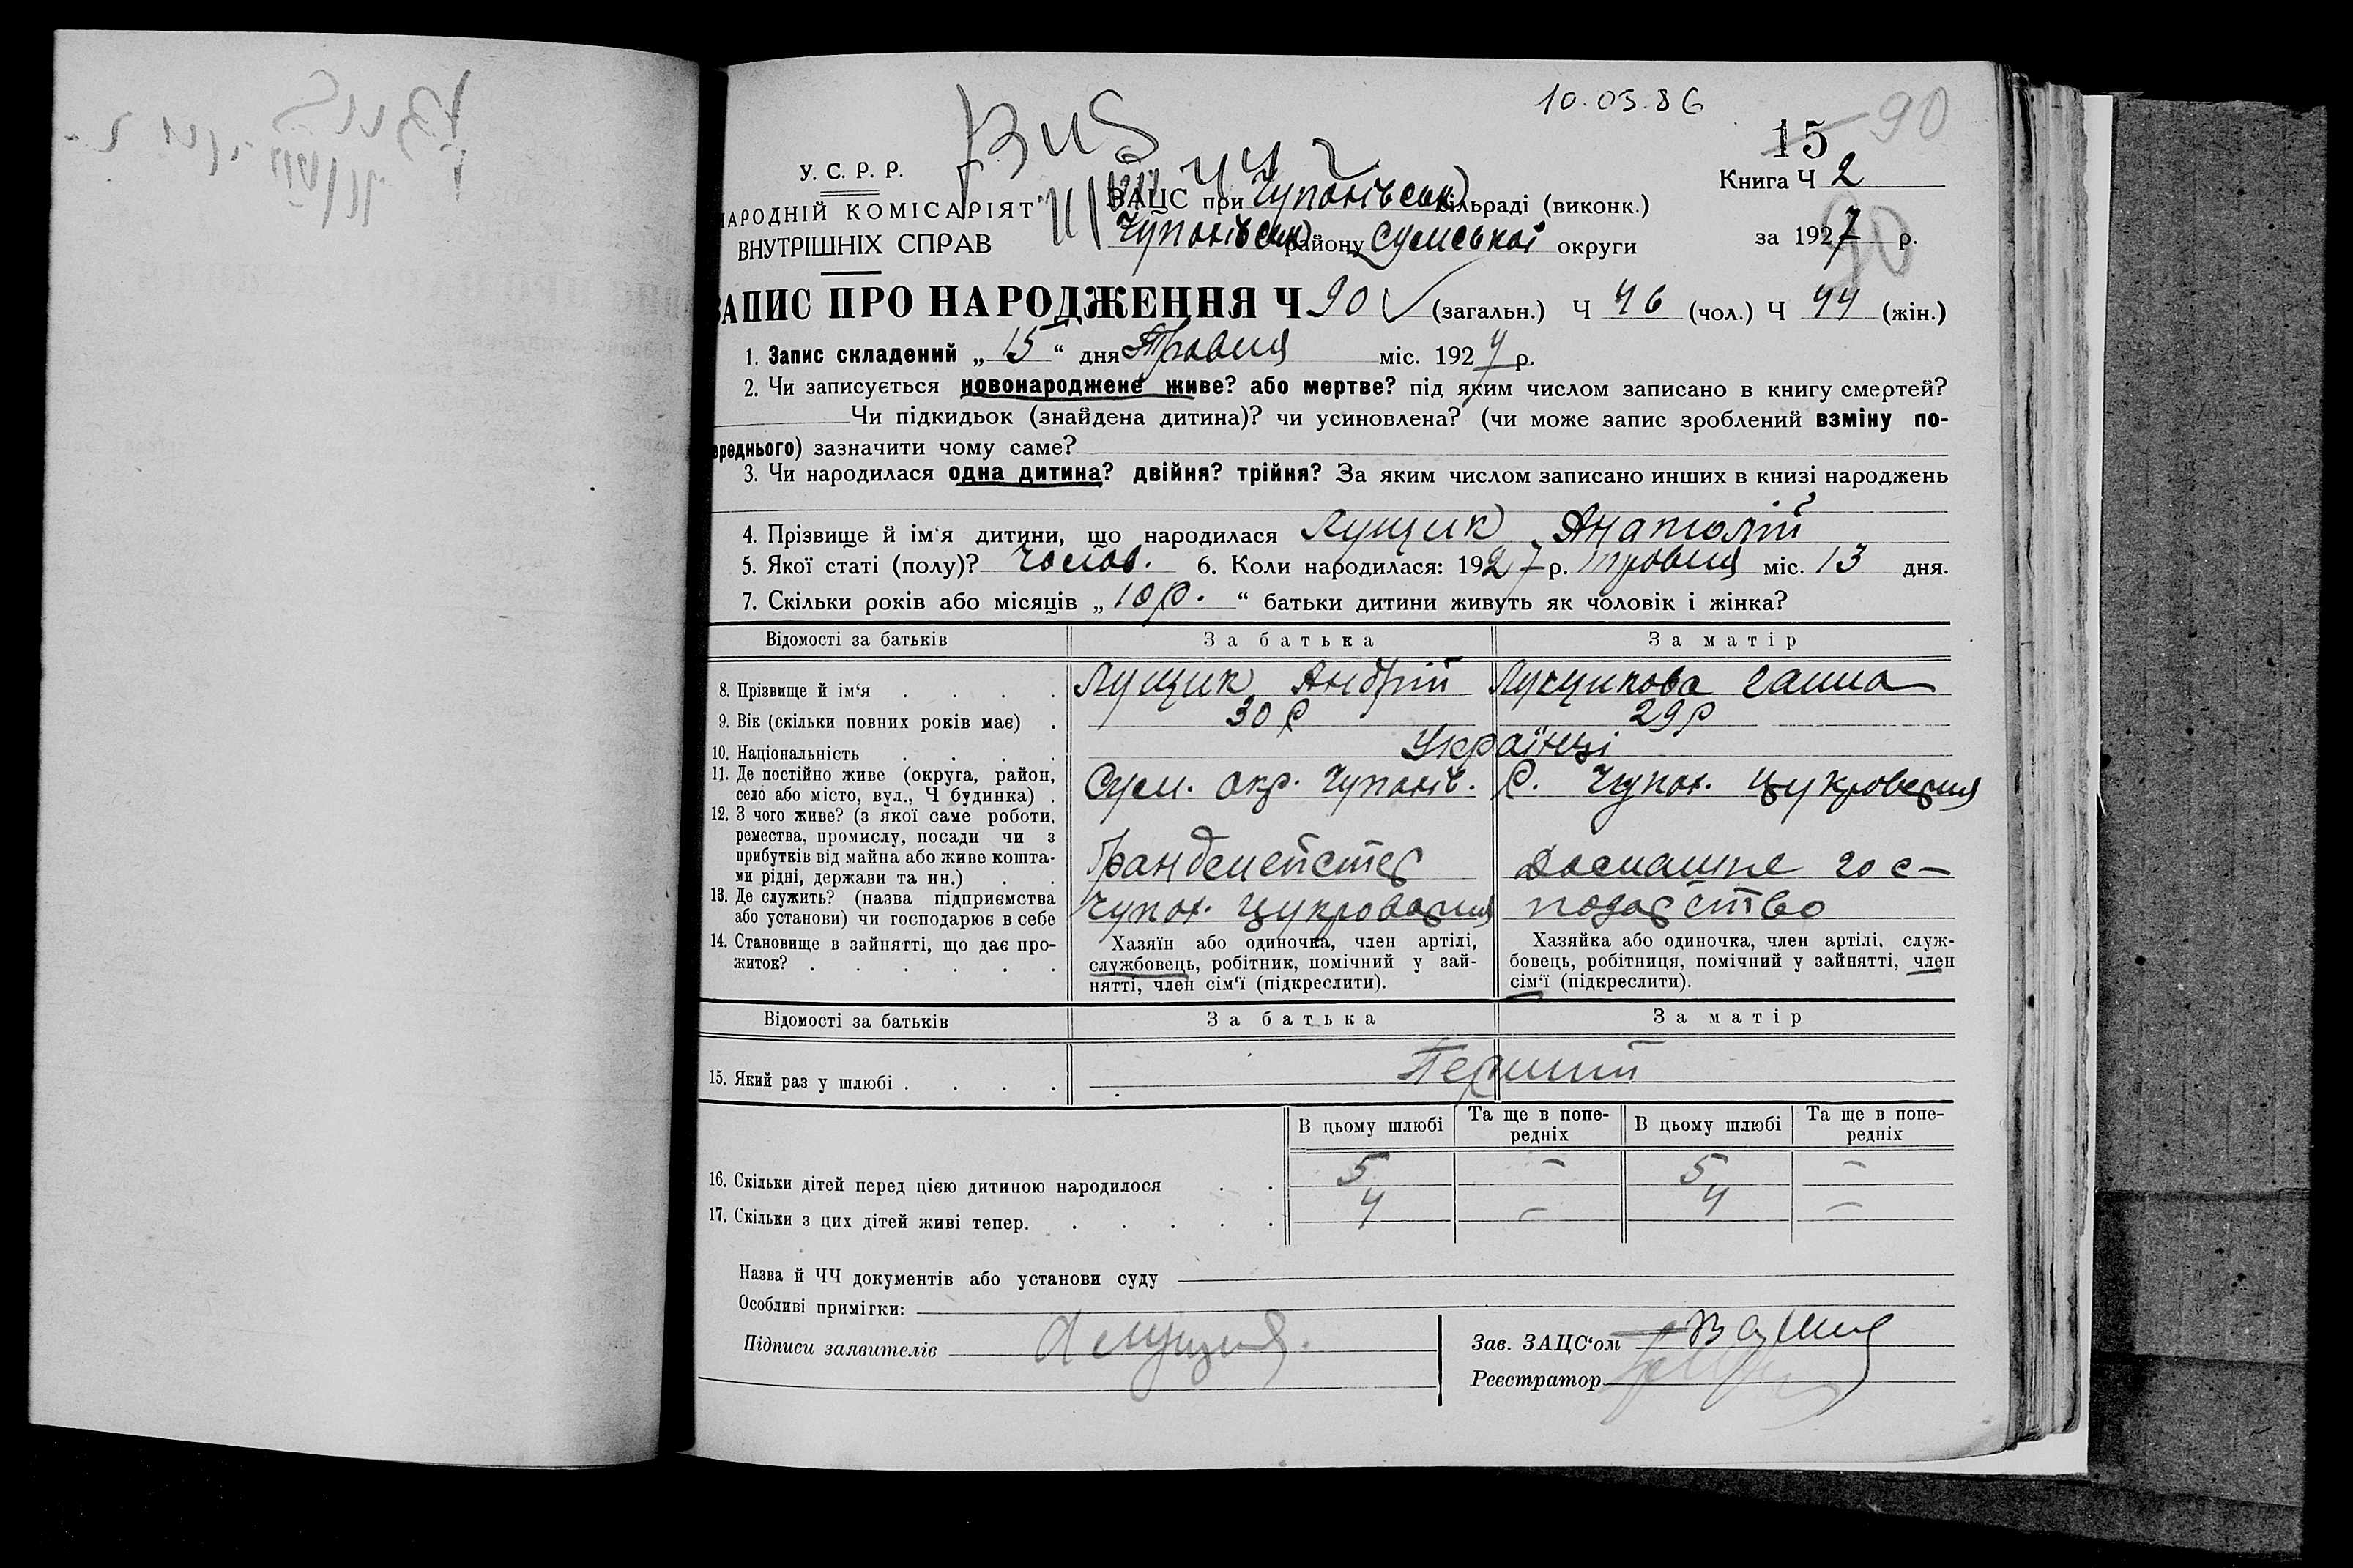 10.03.86
15 90
У. С. Р. Р.
Книга Ч 2
НАРОДНІЙ КОМІСАРІЯТ
ВНУТРІШНІХ СПРАВ
ЗАЦС при Чупахівськ. сільраді (виконк.)
Чупахівськ. району Сумської округи
за 1927 р.
90
ЗАПИС ПРО НАРОДЖЕННЯ Ч 90 (загальн.) Ч 46 (чол.) Ч 44 (жін.)
1. Запис складений „ 15 “ дня Травня міс. 1927 р.
2. Чи записується новонароджене живе? або мертве? під яким числом записано в книгу смертей?
Чи підкидьок (знайдена дитина)? чи усиновлена? (чи може запис зроблений взміну по-
ереднього) зазначити чому саме?
3. Чи народилася одна дитина? двійня? трійня? За яким числом записано инших в книзі народжень
4. Прізвище й ім‘я дитини, що народилася Лущик Анатолій
5. Якої статі (полу)? чолов. 6. Коли народилася: 1927 р. травня міс. 13 дня.
7. Скільки років або місяців „ 10 р. “ батьки дитини живуть як чоловік і жінка?
Відомості за батьків За батька За матір
8. Прізвище й ім‘я Лущик Андрій Лущикова Ганна
9. Вік (скільки повних років має) 30 р 29 р
10. Національність Українці
11. Де постійно живе (округа, район,
село або місто, вул., Ч будинка) Сум. окр. Чупахів. Р. Чупах. цукроварня
12. З чого живе? (з якої саме роботи,
ремества, промислу, посади чи з
прибутків від майна або живе кошта-
ми рідні, держави та ин.) Брандмейстер Домашнє гос-
13. Де служить? (назва підприємства
або установи) чи господарює в себе Чупах. цукроварня подарство
14. Становище в зайнятті, що дає про-
житок?
Хазяїн або одиночка, член артілі,
службовець, робітник, помічний у зай-
нятті, член сім‘ї (підкреслити).
Хазяйка або одиночка, член артілі, служ-
бовець, робітниця, помічний у зайнятті, член
сім‘ї (підкреслити).
Відомості за батьків За батька За матір
15. Який раз у шлюбі Перший
В цьому шлюбі Та ще в попе-
редніх В цьому шлюбі Та ще в попе-
редніх
16. Скільки дітей перед цією дитиною народилося 5 – 5 –
17. Скільки з цих дітей живі тепер. 4 – 4 –
Назва й ЧЧ документів або установи суду
Особливі примітки:
Підписи заявителів А Лущик.
Зав. ЗАЦС‘ом
Реєстратор